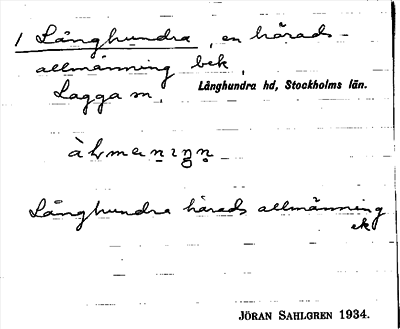 1 Långhundra, en härads-
allmänning bek.
Lagga sn, Långhundra hd, Stockholms län.
Långhundra härads allmänning
ek
JÖRAN SAHLGREN 1934.